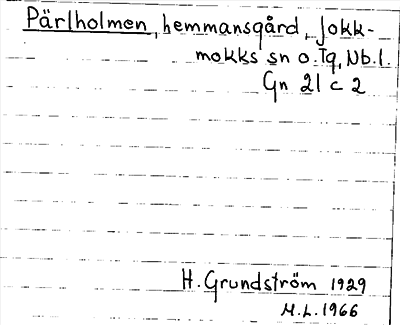 Pärlholmen, hemmansgård, Jokk-
mokks sn o. Tg, Nb.l.
Gn 21 c 2
H. Grundström 1929
M.L. 1966